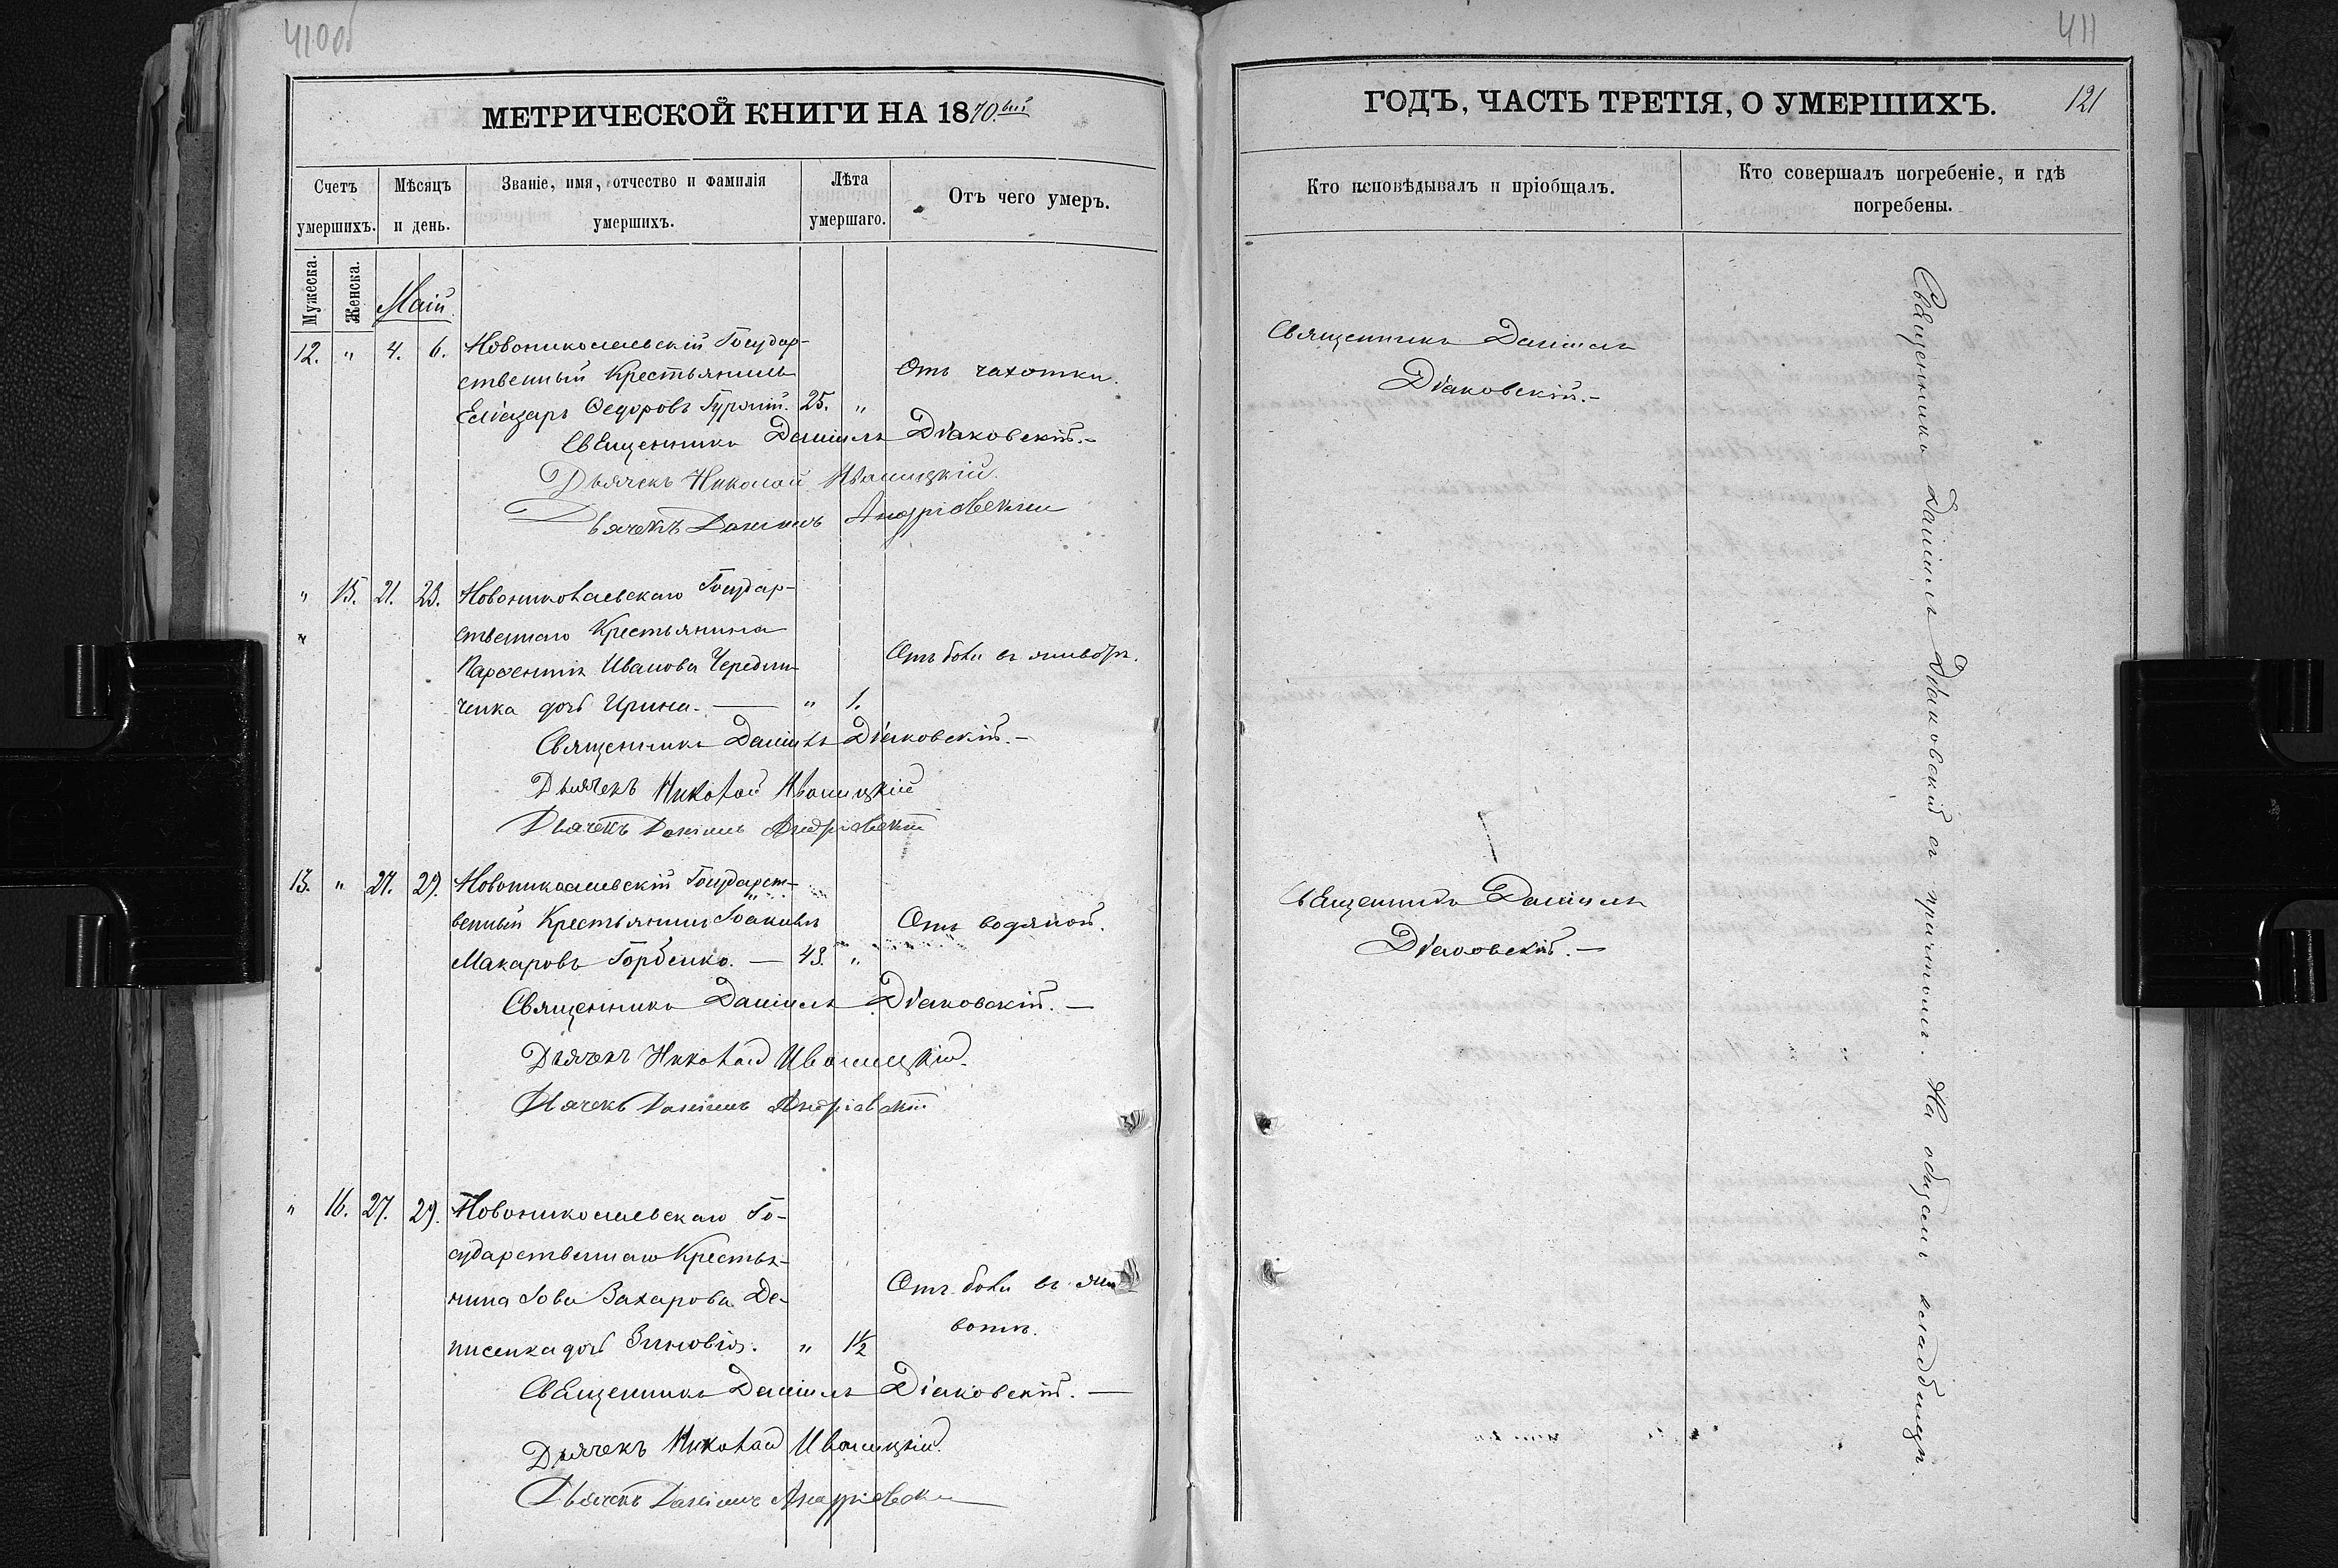 410об
МЕТРИЧЕСКОЙ КНИГИ НА 1870.ый
Счетъ умершихъ.
Мѣсяцъ и день.
Званіе, имя, отчество и фамилія умершихъ.
Лѣта умершаго.
Отъ чего умеръ.
Мужеска.
Женска.
Маій
12. " 4. 6. Новониколаевскій Государ-
ственный Крестьянинъ
Отъ чахотки.
Еліазаръ Ѳедоровъ 25. "
Священникъ Даніилъ Діаковскій.-
Дьячекъ Николай Иваницкій.
Дьячекъ Даніилъ Андріевскій
" 15. 21. 23. Новониколаевскаго Государ-
"
ственнаго Крестьянина
Парѳентія Иванова Чередни-
Отъ боли въ животѣ.
ченка дочь Ирина. — " 1.
Священникъ Даніилъ Діаковскій.-
Дьячекъ Николай Иваницкій
Дьячекъ Даніилъ Андріевскій
13. " 27. 29. Новониколаевскій Государст-
венный Крестьянинъ Іоакимъ
Отъ водяной.
Макаровъ Горбенко. — 43. "
Священникъ Даніилъ Діаковскій. —
Дьячекъ Николай Иваницкій.
Дьячекъ Даніилъ Андріевскій
" 16. 27. 29. Новониколаевскаго Го-
сударственнаго Крестья-
нина Іова Захарова Де-
Отъ боли въ жи
нисенка дочь Зиновія. " 1½
вотѣ.
Священникъ Даніилъ Діаковскій. —
Дьячекъ Николай Иваницкій.
Дьячекъ Даніилъ Андріевскій
411
ГОДЪ, ЧАСТЬ ТРЕТІЯ, О УМЕРШИХЪ.
121
Кто исповѣдывалъ и пріобщалъ.
Кто совершалъ погребеніе, и гдѣ погребены.
Священникъ Даніилъ
Діаковскій.-
Священникъ Даніилъ
Діаковскій. —
Священникъ Даніилъ Діаковскій съ причтомъ. На общемъ кладбищѣ.